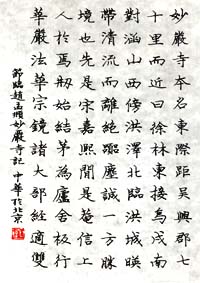 妙嚴寺本名東際距吳興郡七
十里而近曰徐林東接烏戍南
對涵山西傍洪澤北臨洪城暎
帶清流而離絕囂塵誠一方勝
境也先是宋嘉熙間是菴信上
人於焉刱始結茅為廬舍板行
華嚴法華宗鏡諸大部經適雙
節臨趙孟頫妙嚴寺記 中華於北京